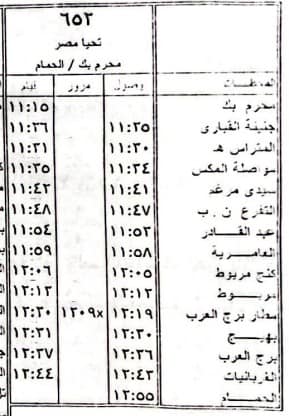 ٦٥٢
تحيا مصر
محرم بك / الحمام
المحطات وصول مرور قيام
محرم بك ١١:١٥
جنينة القبارى ١١:٢٥ ١١:٢٦
المتراس هـ ١١:٣٠ ١١:٣١
مواصلة المكس ١١:٣٤ ١١:٣٥
سيدى مرغم ١١:٤١ ١١:٤٢
التفرع ن . ب ١١:٤٧ ١١:٤٨
عبد القادر ١١:٥٣ ١١:٥٤
العامرية ١١:٥٨ ١١:٥٩
كنج مريوط ١٢:٠٥ ١٢:٠٦
مريوط ١٢:١٢ ١٢:١٣
مطار برج العرب ١٢:١٩ ١٣٠٩x ١٢:٢٠
بهيج ١٢:٣٠ ١٢:٣١
برج العرب ١٢:٣٦ ١٢:٣٧
الغربانيات ١٢:٤٣ ١٢:٤٤
الحمام ١٢:٥٥